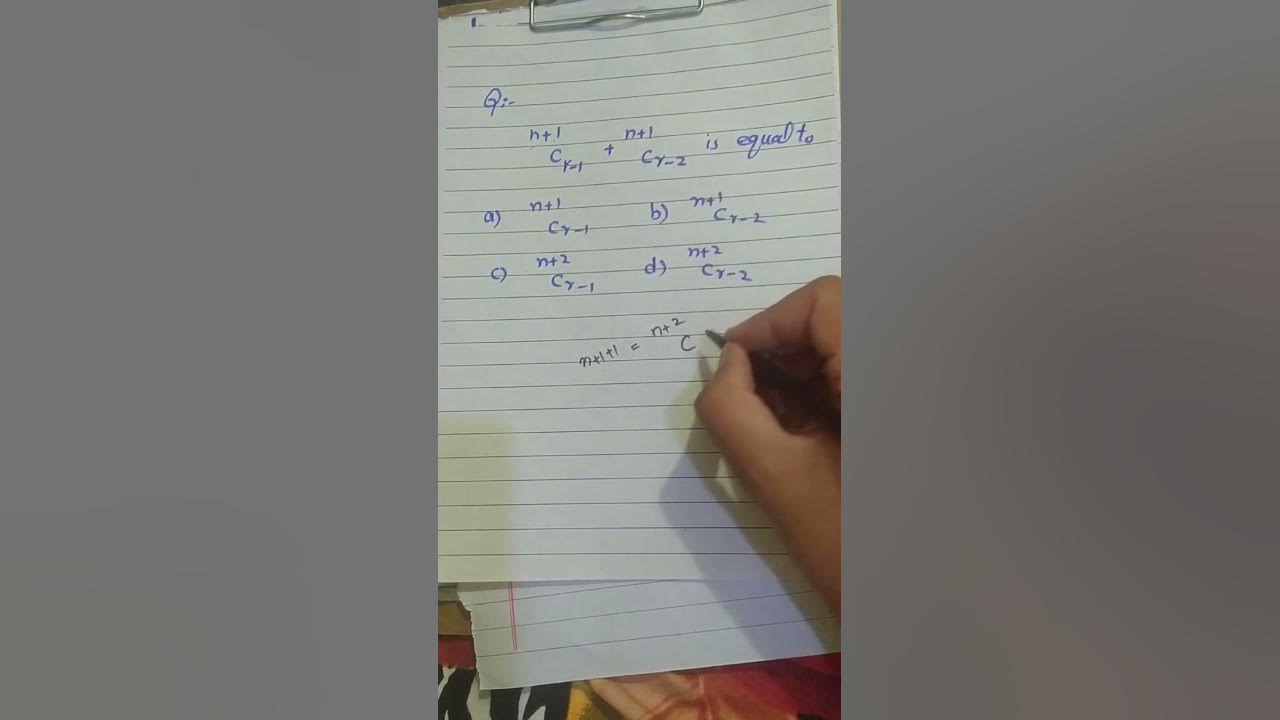 Q:-
n+1Cr-1 + n+1Cr-2 is equal to
a) n+1Cr-1 b) n+1Cr-2
c) n+2Cr-1 d) n+2Cr-2
n+1+1 = n+2C